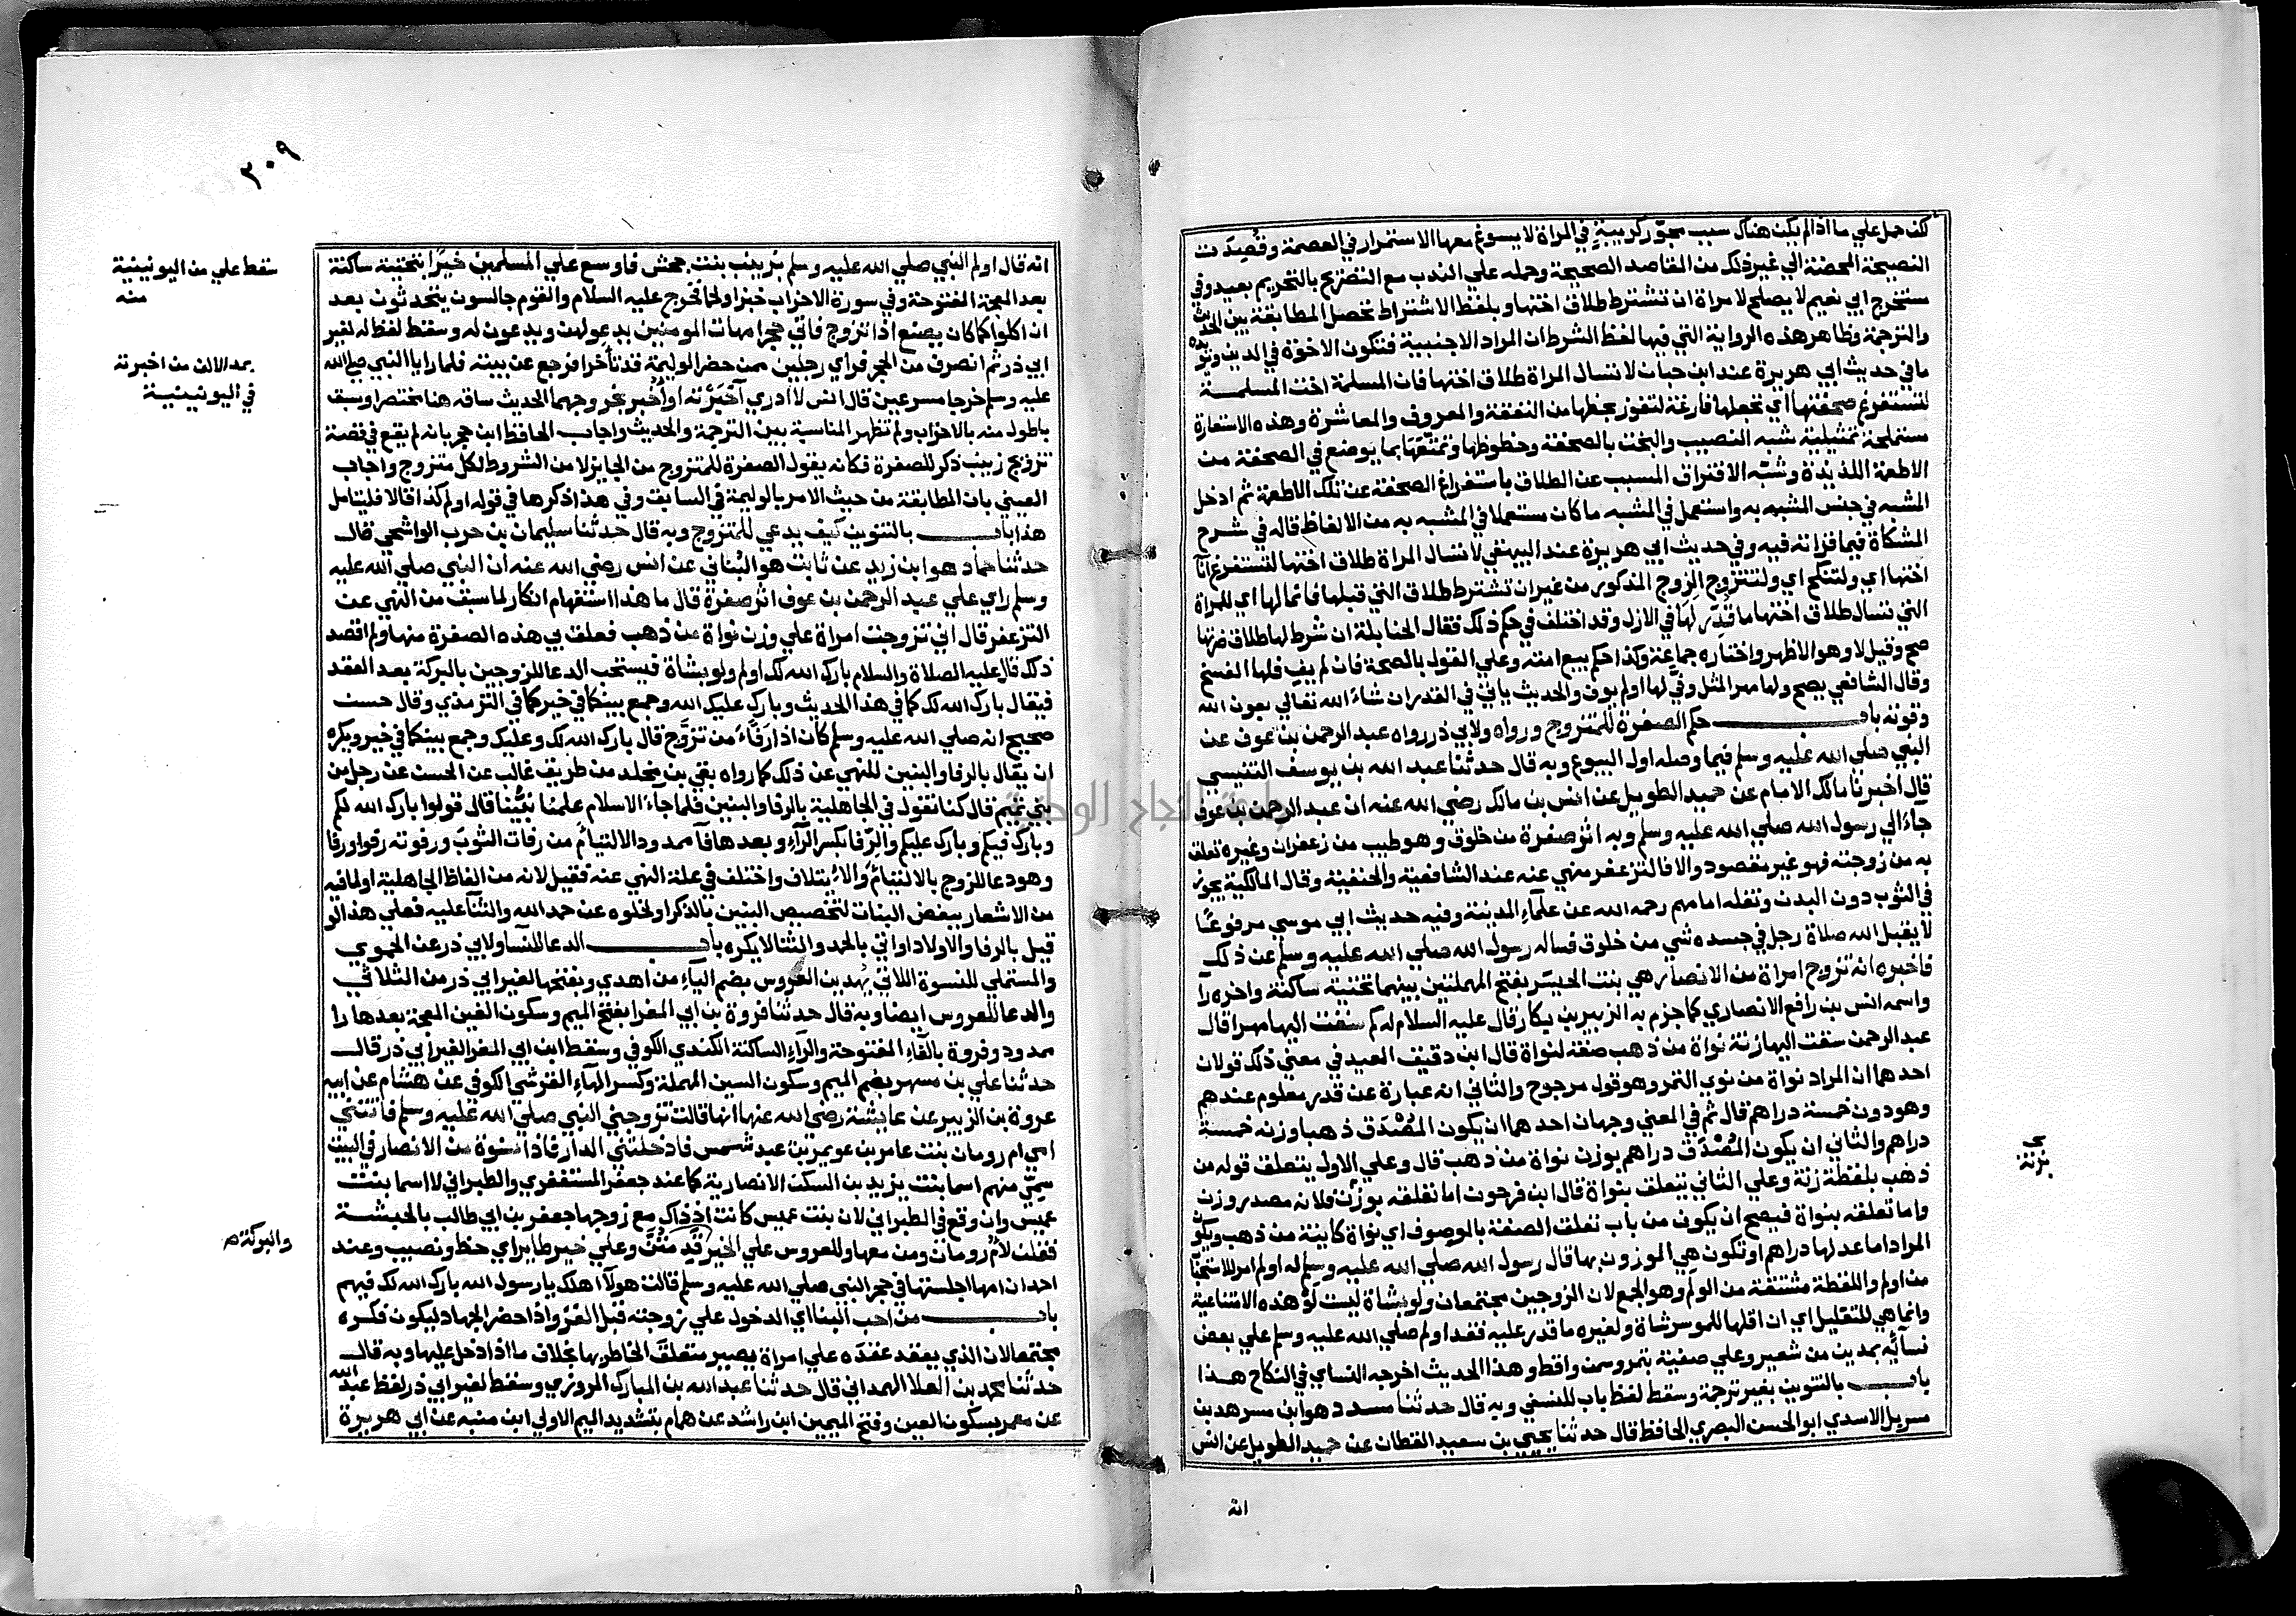 لكن حمل علي ما اذا لم يكن هناك سبب مجوّز كريبة في المراة لا يسوغ معها الاستمرار في العصمة وقُصِدَت
النصيحة المحضة الي غير ذلك من المقاصد الصحيحة وحمله علي الندب مع التصريح بالتحريم بعيد وفي
مستخرج ابي نعيم لا يصلح لامراة ان تشترط طلاق اختها وبلفظ الاشتراط تحصل المطابقة بين الحديث
والترجمة وظاهر هذه الرواية التي فيها لفظ الشرط ان المراد الاجنبية فتكون الاخوّة في الدين ويؤيده
ما في حديث ابي هريرة عند ابن حبان لا تسال المراة طلاق اختها فان المسلمة اخت المسلمة
لتستفرغ صحفتها اي تجعلها فارغة لتفوز بحظها من النفقة والمعروف والمعاشرة وهذه الاستعارة
مستملحة تمثيلية شبه النصيب والبخت بالصحفة وحظوظها وتمتّعها بما يوضع في الصحفة من
الاطعمة اللذيذة وشبّه الافتراق المسبب عن الطلاق باستفراغ الصحفة عن تلك الاطعمة ثم ادخل
المشبه في جنس المشبه به واستعمل في المشبه ما كان مستعملا في المشبه به من الالفاظ قاله في شرح
المشكاة فيما قراته فيه وفي حديث ابي هريرة عند البيهقي لا تسال المراة طلاق اختها لتستفرغ انآ
اختها اي ولتنكح اي ولتتزوج الزوج المذكور من غير ان تشترط طلاق التي قبلها فانما لها اي للمراة
التي تسال طلاق اختها ما قدّر لها في الازل وقد اختلف في حكم ذلك فقال الحنابلة ان شرط لها طلاق ضرتها
صح وقيل لا وهو الاظهر واختاره جماعة وكذا حكم بيع امته وعلي القول بالصحة فان لم يف فلها الفسخ
وقال الشافعي يصح ولها مهر المثل وفّي لها او لم يوف والحديث ياتي في القدر ان شاء الله تعالي بعون الله
وقوته باب حكم الصفرة للمتزوج ورواه ولابي ذر رواه عبد الرحمن بن عوف عن
النبي صلي الله عليه وسلم فيما وصله اول البيوع وبه قال حدثنا عبد الله بن يوسف التنيسي
قال اخبرنا مالك الامام عن حميد الطويل عن انس بن مالك رضي الله عنه ان عبد الرحمن بن عوف
جاء الي رسول الله صلي الله عليه وسلم وبه اثر صفرة من خلوق وهو طيب من زعفران وغيره تعلق
به من زوجته فهو غير مقصود والا فالتزعفر منهي عنه عند الشافعية والحنفية وقال المالكية يجوز
في الثوب دون البدن ونقله امامهم رحمه الله عن علمآء المدينة وفيه حديث ابي موسي مرفوعًا
لا يقبل الله صلاة رجل في جسده شي من خلوق فساله رسول الله صلي الله عليه وسلم عن ذلك
فاخبره انه تزوج امراة من الانصار هي بنت الحيسر بفتح المهملتين بينهما تحتية ساكنة واخره را
واسمه انس بن رافع الانصاري كما جزم به الزبير بن بكار قال عليه السلام له كم سقت اليها مهرا قال
عبد الرحمن سقت اليها زنة نواة من ذهب صفة لنواة قال ابن دقيق العيد في معني ذلك قولان
احدهما ان المراد نواة من نوي التمر وهو قول مرجوح والثاني انه عبارة عن قدر معلوم عندهم
وهو دون خمسة دراهم قال ثم في المعني وجهان احدهما ان يكون المُصْدَق ذهبا وزنه خمسة
دراهم والثاني ان يكون المُصْدَق دراهم بوزن نواة من ذهب قال وعلي الاول يتعلق قوله من
ذهب بلفظة زنة وعلي الثاني يتعلق بنواة قال ابن فرحون اما تعلقه بوزن فلانه مصدر وزن
واما تعلقه بنواة فيصح ان يكون من باب تعلق الصفة بالموصوف اي نواة كاينة من ذهب ويكون
المراد اما عدلها دراهم او تكون هي الموزون بها قال رسول الله صلي الله عليه وسلم له اولم امر للاستحباب
من اولم واللفظة مشتقة من الولم وهو الجمع لان الزوجين مجتمعان ولو بشاة ليست لو هذه الامتناعية
وانما هي للتقليل اي ان اقلها للموسر شاة ولغيره ما قدر عليه فقد اولم صلي الله عليه وسلم علي بعض
نسائه بمدين من شعير وعلي صفية بتمر وسمن واقط وهذا الحديث اخرجه النساي في النكاح هذا
باب بالتنوين بغير ترجمة وسقط لفظ باب للنسفي وبه قال حدثنا مسدد هو ابن مسرهد بن
مسربل الاسدي ابو الحسن البصري الحافظ قال حدثنا يحيي بن سعيد القطان عن حميد الطويل عن انس
انه
بزنة
٣٠٩
انه قال اولم النبي صلي الله عليه وسلم بزينب بنت جحش فاوسع علي المسلمين خيرًا بتحتية ساكنة
بعد المعجمة المفتوحة وفي سورة الاحزاب خبزا ولحما فخرج عليه السلام والقوم جالسون يتحدثون بعد
ان اكلوا كما كان يصنع اذا تزوج فاتي حجر امهات المومنين يدعو لهن ويدعون له وسقط لفظ له لغير
ابي ذر ثم انصرف من الحجر فراي رجلين ممن حضر الوليمة قد تأخرا فرجع عن بيته فلما رايا النبي صلي الله
عليه وسلم خرجا مسرعين قال انس لا ادري آخْبَرْته او أُخبر بخروجهما الحديث ساقه هنا مختصرا وسبق
باطول منه بالاحزاب ولم تظهر المناسبة بين الترجمة والحديث واجاب الحافظ ابن حجر بانه لم يقع في قصة
تزويج زينب ذكر للصفرة فكانه يقول الصفرة للمتزوج من الجايز لا من الشروط لكل متزوج واجاب
العيني بان المطابقة من حيث الامر بالوليمة في السابق وفي هذا ذكرها في قوله اولم كذا قالا فليتامل
هذا باب بالتنوين كيف يدعي للمتزوج وبه قال حدثنا سليمان بن حرب الواشحي قال
حدثنا حماد هو ابن زيد عن ثابت هو البُناني عن انس رضي الله عنه ان النبي صلي الله عليه
وسلم راي علي عبد الرحمن بن عوف اثر صفرة قال ما هذا استفهام انكار لما سبق من النهي عن
التزعفر قال اني تزوجت امراة علي وزن نواة من ذهب فعلق بي هذه الصفرة منها ولم اقصد
ذلك قال عليه الصلاة والسلام بارك الله لك اولم ولو بشاة فيستحب الدعا للزوجين بالبركة بعد العقد
فيقال بارك الله لك كما في هذا الحديث وبارك عليك الله وجمع بينكما في خير كما في الترمذي وقال حسن
صحيح انه صلي الله عليه وسلم كان اذا رفّأ من تزوّج قال بارك الله لك وعليك وجمع بينكما في خير ويكره
ان يقال بالرفا والبنين للنهي عن ذلك كما رواه بقي بن مخلد من طريق غالب عن الحسن عن رجل من
بني تميم قال كنا نقول في الجاهلية بالرفا والبنين فلما جاء الاسلام علمنا نبيُّنا قال قولوا بارك الله لكم
وبارك فيكم وبارك عليكم والرّفا بكسر الرآء وبعدها فآ ممدود الالتيام من رفات الثوب ورفوته رفوا ورفا
وهو دعا للزوج بالالتئام والائتلاف واختلف في علة النهي عنه فقيل لانه من الفاظ الجاهلية او لما فيه
من الاشعار ببغض البنات لتخصيص البنين بالذكر او لخلوه عن حمد الله والثنآ عليه فعلي هذا لو
قيل بالرفا والاولاد او اتي بالحمد والثنا لا يكره باب الدعا للنسآ ولابي ذر عن الحموي
والمستملي للنسوة اللاتي يُهدين العروس بضم الياء من اهدي وبفتحها لغير ابي ذر من الثلاثي
والدعا للعروس ايضا وبه قال حدثنا فروة بن ابي المغرا بفتح الميم وسكون الغين المعجمة بعدها را
ممدود وفروة بالفاء المفتوحة والراء الساكنة الكندي الكوفي وسقط ابن ابي المغرا لغير ابي ذر قال
حدثنا علي بن مسهر بضم الميم وسكون السين المهملة وكسر الهاء القرشي الكوفي عن هشام عن ابيه
عروة بن الزبير عن عايشة رضي الله عنها انها قالت تزوجني النبي صلي الله عليه وسلم فاتتني
امي ام رومان بنت عامر بن عويمر بن عبد شمس فادخلتني الدار فاذا نسوة من الانصار في البيت
سمّي منهم اسما بنت يزيد بن السكن الانصارية كما عند جعفر المستغفري والطبراني لا اسما بنت
عميس وان وقع في الطبراني لان بنت عميس كانت اذ ذاك مع زوجها جعفر بن ابي طالب بالحبشة
فقلن لأم رومان ومن معها وللعروس علي الخير قَدِمْتُنّ وعلي خير طاير اي حظ ونصيب وعند
احد ان امها اجلستها في حجر النبي صلي الله عليه وسلم قالت هولآ اهلك يا رسول الله بارك الله لك فيهم
باب من احب البنا اي الدخول علي زوجته قبل الغزو اذا حضر الجهاد ليكون فكره
مجتمعا لان الذي يعقد عقده علي امراة يصير متعلق الخاطر بها بخلاف ما اذا دخل عليها وبه قال
حدثنا محمد بن العلا الهمداني قال حدثنا عبد الله بن المبارك المروزي وسقط لغير ابي ذر لفظ عبد الله
عن معمر بسكون العين وفتح الميمين ابن راشد عن همام بتشديد الميم الاولي ابن منبه عن ابي هريرة
سقط علي من اليونينية
منه
بمد الالف من اخبرته
في اليونينية
والبركة صح
جامعة النجاح الوطنية